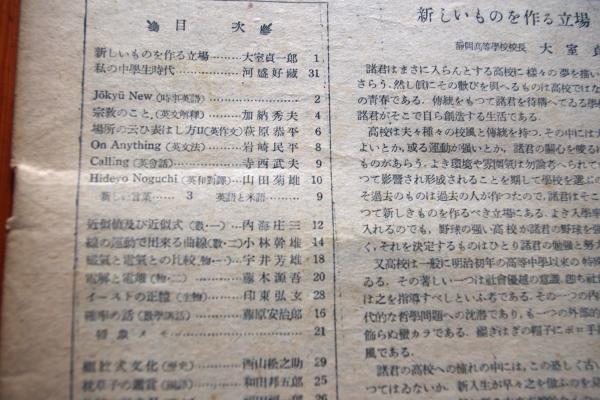 目次
新しいものを作る立場………大室貞一郎 1
私の中學生時代………河盛好藏 31
Jōkyū New (時事英語)………2
宗敎のこと (英文解釋)………加納秀夫 4
場所の云ひ表はし方II(英作文) 萩原恭平 6
On Anything (英文法)………岩崎民平 8
Calling (英會話)………寺西武夫 9
Hideyo Noguchi (英和對譯)………山田菊雄 10
新しい言葉……… 3 英語と米語………9
近似値及び近似式 (數・一) 內海庄三 12
線の運動で出來る曲線(數・二) 小林幹雄 14
磁氣と電氣との比較(物・一) 宇井芳雄 18
電解と電離 (物・二)………藤木源吾 20
イーストの正體 (生物)………印東弘玄 28
確率の話 (數學講話)………藤原安治郎 16
21
文化 (歷史)………西山松之助 29
枕草子の鑑賞 (國語)………和田邦五郎 25
新しいものを作る立場
靜岡高等學校校長 大室貞
諸君はまさに入らんとする高校に様々の夢を描い
さらう、然し信にその歡びを與へるものは高校ではな
の靑春である。傳統をもつて諸君を待構へてゐる學校
諸君がそこで自ら創造する生活である。
高校は夫々種々の校風と傳統を持つ。その中には大
よいとか、或る運動が强いとか、諸君の關心を喚る
ものがあらう。よき環境や雰圍氣は勿論者へられて
つて影響され形成されることを期して學校を選ぶの
そ過去のものは過去の人が作つたので、諸君はそこ
つて新しきものを作るべき立場にある。よき入學率
入れるのでも、野球の强い高校が諸君の野球を强
く、それを決定するものはひとり諸君の勉强と努力
又高校は一般に明治初年の高等中學以來の特殊
ゐる。その著しい一つは社會優越の意識、卽ち社會
は之を指導すべしといふ考である。その一つの內
代的な哲學問題への沈潛であり、も一つの外部的
飾らぬ蠻カラである。繼ぎはぎの帽子にボロ手拭
風である。
諸君の高校への憧れの中には、この惡しく古い
つてはゐないか。新入生が早々之を倣ふのを見